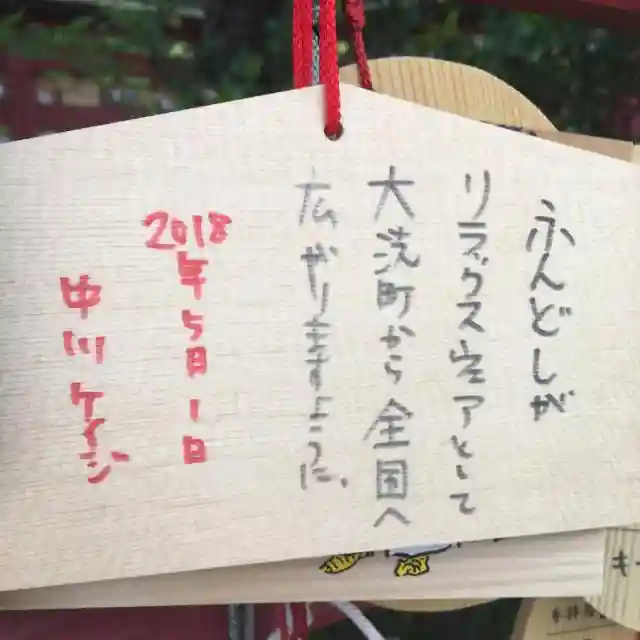 ふんどしが
リラックスウェアとして
大洗町から全国へ
広がりますように、
2018年5月1日
中川ケイジ
キー